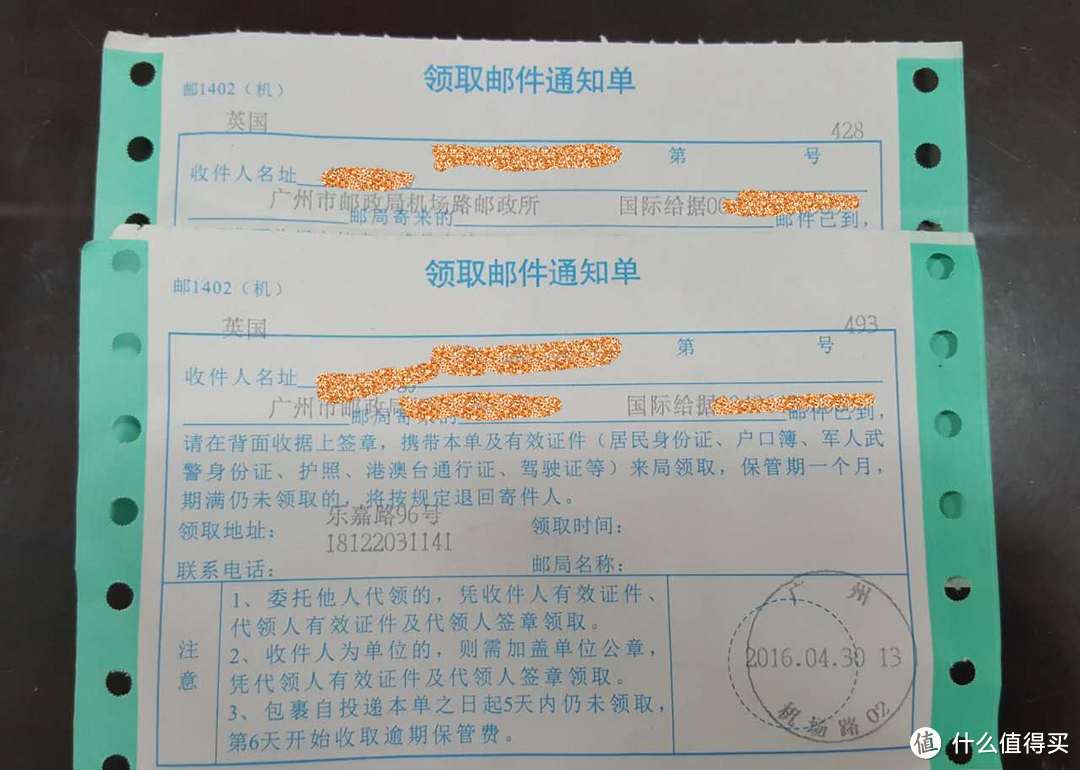 领取邮件通知单
邮1402（机）
英国
428
第 号
收件人名址
广州市邮政局机场路邮政所 国际给据0
邮局寄来的 邮件已到，
领取邮件通知单
邮1402（机）
英国
493
第 号
收件人名址
广州市邮政局 国际给据
邮局寄来的 邮件已到，
请在背面收据上签章，携带本单及有效证件（居民身份证、户口簿、军人武
警身份证、护照、港澳台通行证、驾驶证等）来局领取，保管期一个月，
期满仍未领取的，将按规定退回寄件人。
乐嘉路96号
领取地址： 领取时间：
18122031141
联系电话： 邮局名称：
注意
1、委托他人代领的，凭收件人有效证件、
代领人有效证件及代领人签章领取。
2、收件人为单位的，则需加盖单位公章，
凭代领人有效证件及代领人签章领取。
3、包裹自投递本单之日起5天内仍未领取，
第6天开始收取逾期保管费。
广州
2016.04.30 13
机场路02
值 什么值得买